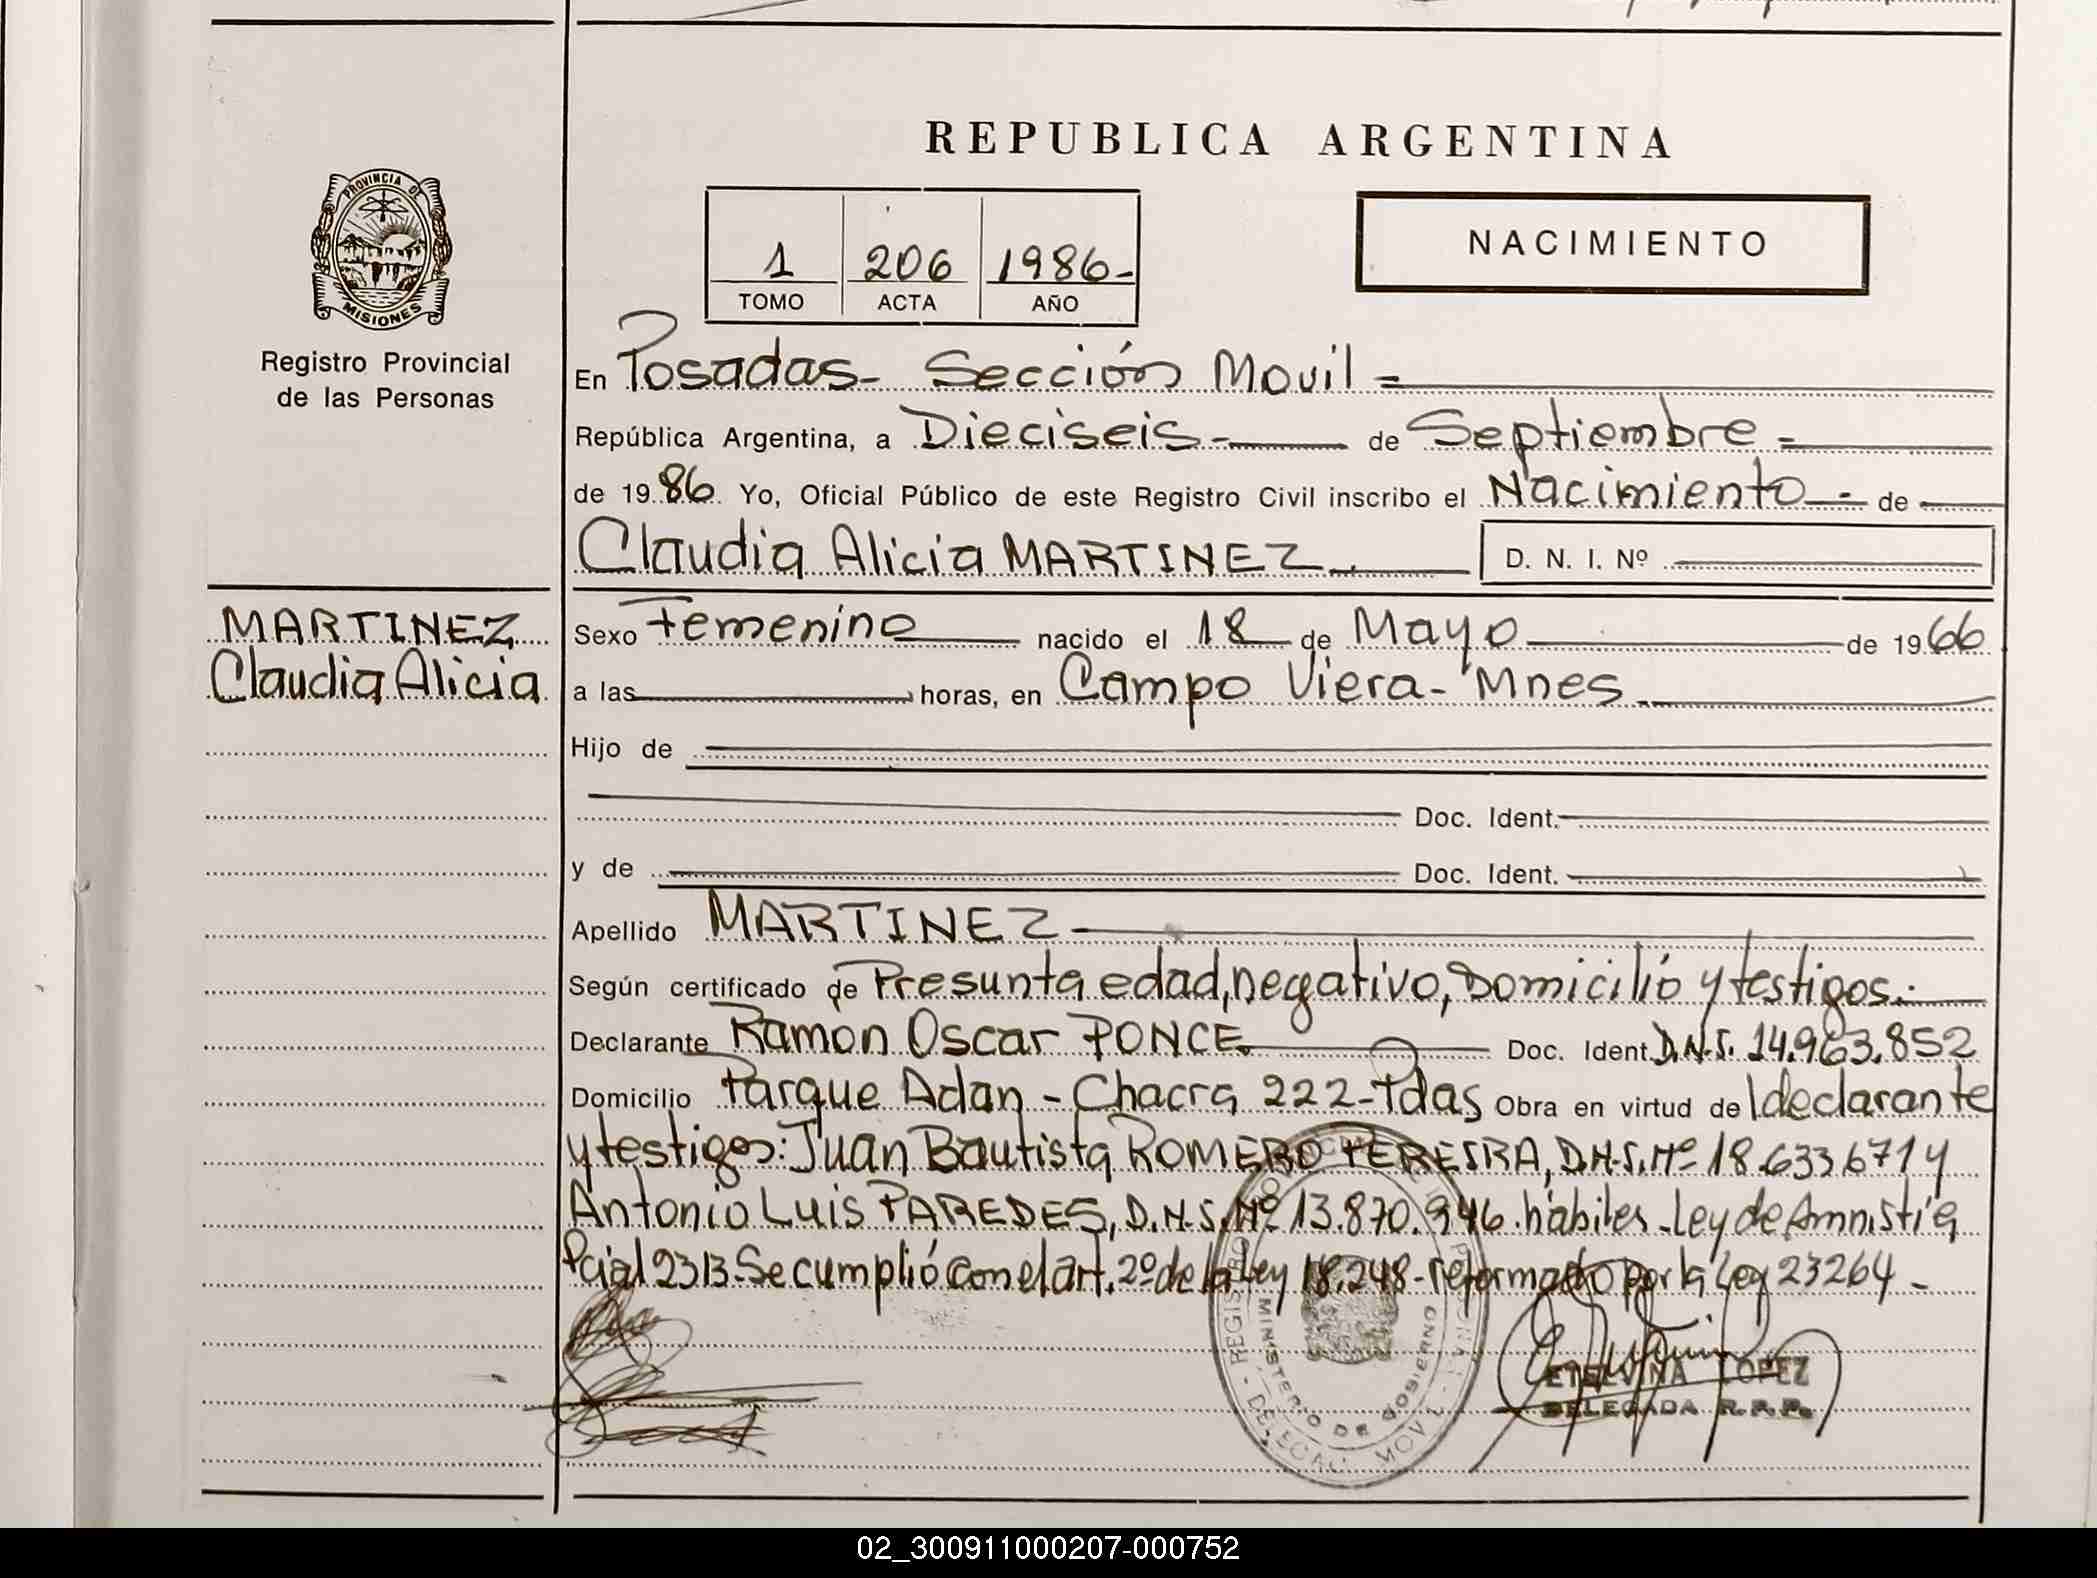 REPUBLICA ARGENTINA
PROVINCIA DE
MISIONES
Registro Provincial
de las Personas
1 206 1986-
TOMO ACTA AÑO
NACIMIENTO
En Posadas- Sección Movil =
República Argentina, a Dieciseis - de Septiembre =
de 1986 Yo, Oficial Público de este Registro Civil inscribo el Nacimiento - de
Claudia Alicia MARTINEZ D. N. I. Nº
MARTINEZ
Claudia Alicia
Sexo Femenino nacido el 18 de Mayo de 1966
a las horas, en Campo Viera- Mnes
Hijo de
Doc. Ident.
y de Doc. Ident.
Apellido MARTINEZ
Según certificado de Presunta edad, negativo, Domicilio y testigos.-
Declarante Ramon Oscar PONCE Doc. Ident. D.N.I. 14.963.852
Domicilio Parque Adan - Chacra 222-Pdas Obra en virtud de l declarante
y testigos: Juan Bautista ROMERO PEREIRA, D.N.I. Nº 18.633671 y
Antonio Luis PAREDES, D.N.I. Nº 13.870.946. hábiles - Ley de Amnistía
Pcial 2313- Se cumplió con el art. 2º de la Ley 18.248- reformado por la Ley 23264 -
MINISTERIO DE GOBIERNO
ETELVINA LOPEZ
DELEGADA R.P.P.
02_300911000207-000752